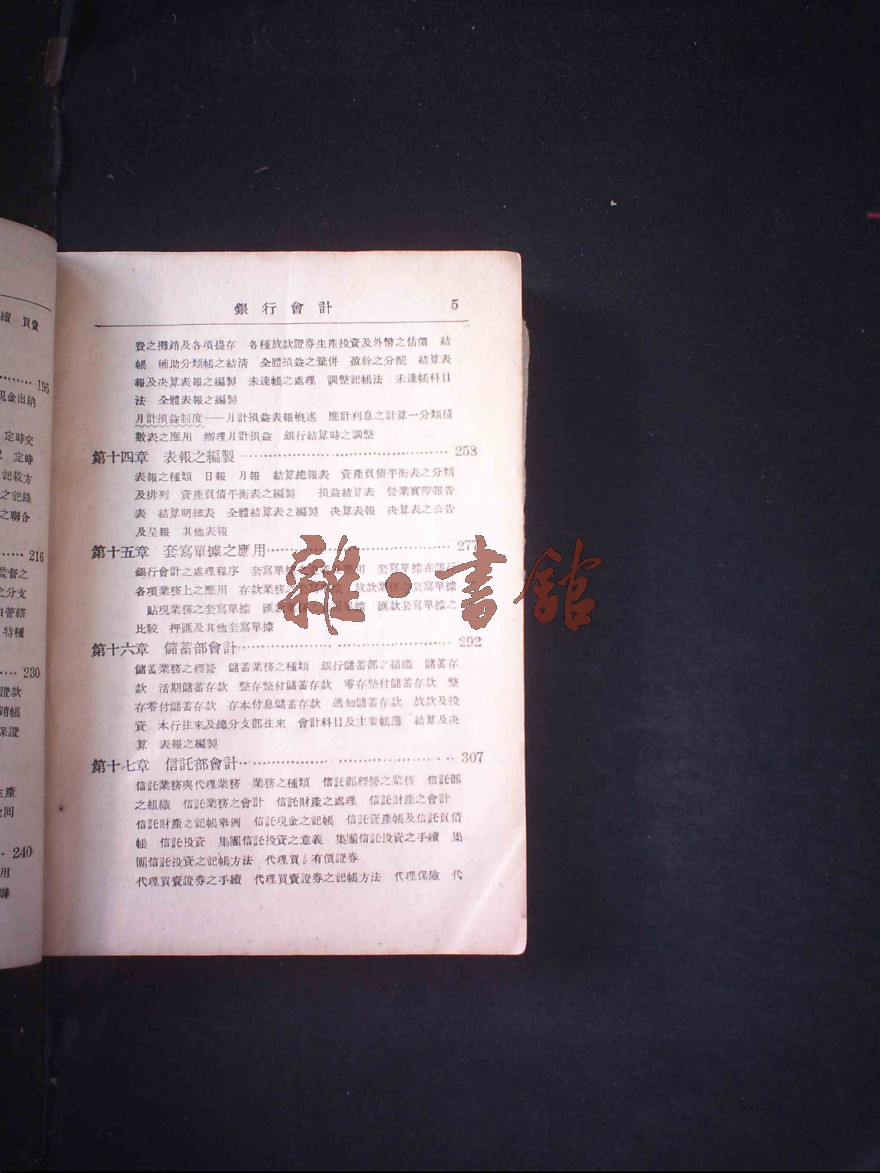 續 買賣
195
現金出納
定時交
記 定時
記載方
之記錄
之聯合
216
監督之
之分支
由管轄
特種
230
證款
銷帳
保證
生產
收回
240
用
銀行會計 5
費之攤銷及各項提存 各種放款證券生產投資及外幣之估價 結
帳 補助分類帳之結清 全體損益之彙併 盈餘之分配 結算表
報及決算表報之編製 未達帳之處理 調整記帳法 未達帳科目
法 全體表報之編製
月計損益制度——月計損益表報概述 應計利息之計算一分類積
數表之應用 辦理月計損益 銀行結算時之調整
第十四章 表報之編製 258
表報之種類 日報 月報 結算總報表 資產負債平衡表之分類
及排列 資產負債平衡表之編製 損益結算表 營業實際報告
表 結算明細表 全體結算表之編製 決算表報 決算表之公告
及呈報 其他表報
第十五章 套寫單據之應用 277
銀行會計之處理程序 套寫單據之應用 套寫單據在銀行
各項業務上之應用 存款業務之套寫單據 放款業務之套寫單據
貼現業務之套寫單據 匯款業務之套寫單據 匯款套寫單據之
比較 押匯及其他套寫單據
第十六章 儲蓄部會計 292
儲蓄業務之經營 儲蓄業務之種類 銀行儲蓄部之組織 儲蓄存
款 活期儲蓄存款 整存整付儲蓄存款 零存整付儲蓄存款 整
存零付儲蓄存款 存本付息儲蓄存款 通知儲蓄存款 放款及投
資 本行往來及總分支部往來 會計科目及主要帳簿 結算及決
算 表報之編製
第十七章 信託部會計 307
信託業務與代理業務 業務之種類 信託部經營之業務 信託部
之組織 信託業務之會計 信託財產之處理 信託財產之會計
信託財產之記帳舉例 信託現金之記帳 信託資產帳及信託負債
帳 信託投資 集團信託投資之意義 集團信託投資之手續 集
團信託投資之記帳方法 代理買 有價證券
代理買賣證券之手續 代理買賣證券之記帳方法 代理保險 代
雜·書館